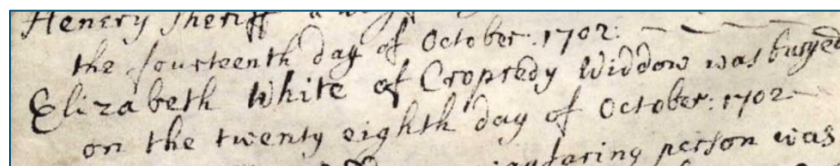 Henery Sheriff
the fourteenth day of October: 1702:
Elizabeth White of Cropredy Widdow was buryed
on the twenty eighth day of October: 1702
person was